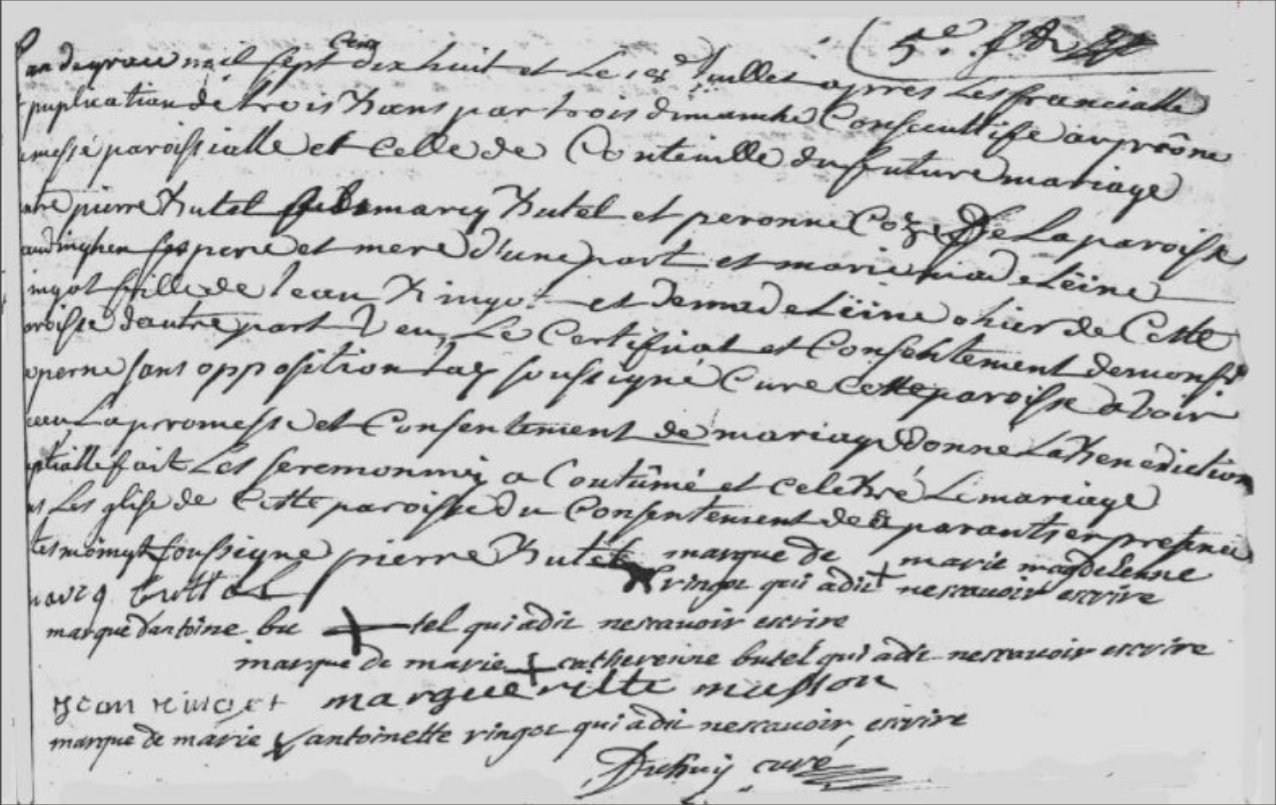 5e
l'an de grace mil sept cens dix huit et le juillet apres Les francialle
puplication de trois bans par trois dimanche Consecutiffe au prône
messe paroissialle et celle de Conteuille du future mariage
pierre butel marcq butel et peronne de La paroisse
audinghen ses pere et mere d'une part et marie madeleine
ringot fille de Jean Ringot et de madeleine ohier de Cette
paroisse d'autre part Veu Le Certificat et Consentement de
sans opposition Jay soussigné Cure Cette paroisse avoir
receu La promesse et Consentement de mariage donne La benediction
nuptialle fait Les seremonniy a Coutumé et celebré Le mariage
Les glise de Cette paroisse du Consentement de parants en presence
soussigne pierre butel marque de marie magdelenne
ringot qui a dit nescauoir escrire
marcq
marque d'antoine bu tel qui a dit nescauoir escrire
marque de marie catherenne butel qui a dit nescauoir escrire
Jean ringot margueritte musson
marque de marie antoinette ringot qui a dit nescauoir escrire
curé